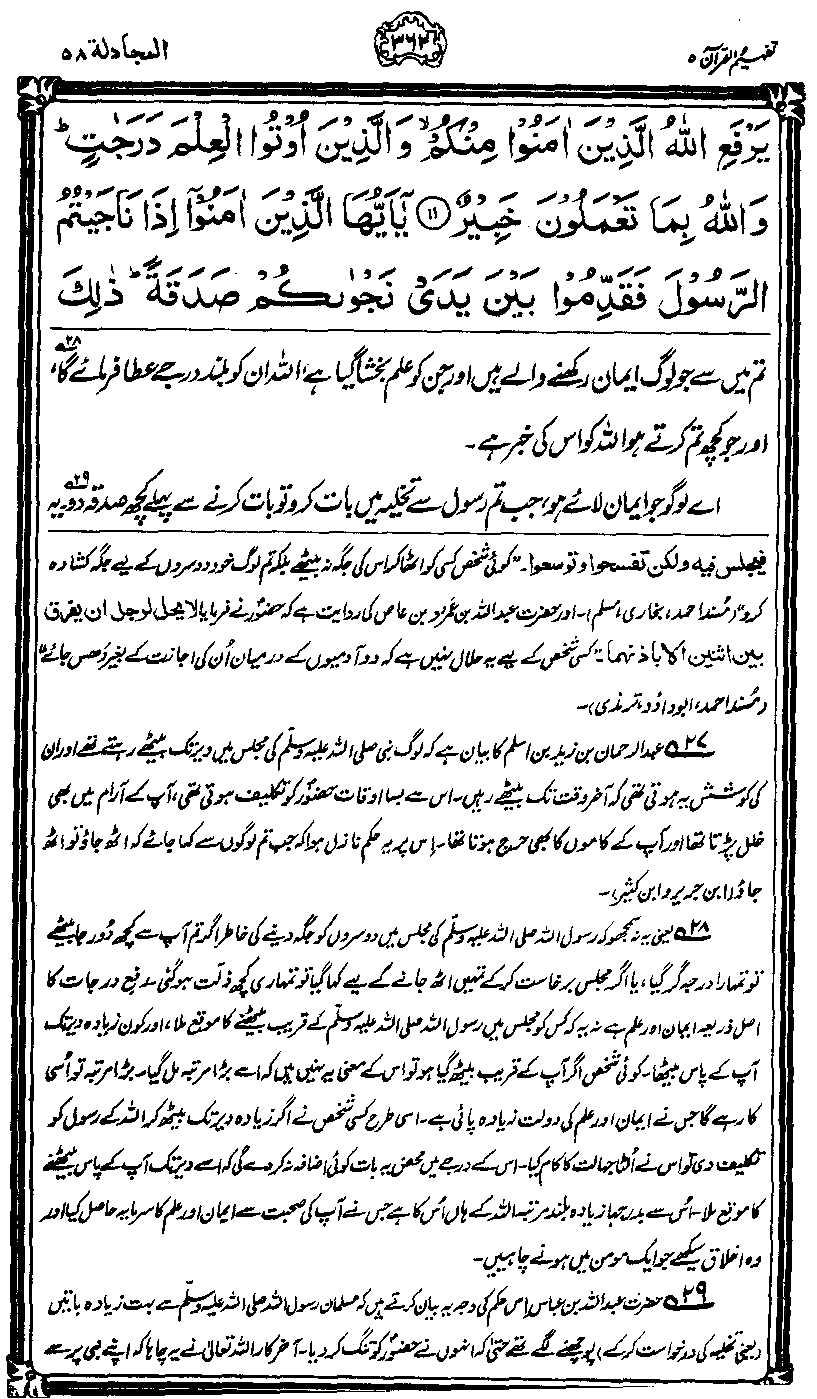 تفہیم القرآن ۵
۳۶۲
المجادلۃ ۵۸
يَرْفَعِ اللّٰهُ الَّذِيْنَ اٰمَنُوْا مِنْكُمْ ۙ وَالَّذِيْنَ اُوْتُوا الْعِلْمَ دَرَجٰتٍ ؕ
وَاللّٰهُ بِمَا تَعْمَلُوْنَ خَبِيْرٌ ⑪ يٰۤاَيُّهَا الَّذِيْنَ اٰمَنُوْۤا اِذَا نَاجَيْتُمُ
الرَّسُوْلَ فَقَدِّمُوْا بَيْنَ يَدَىْ نَجْوٰىكُمْ صَدَقَةً ؕ ذٰلِكَ
تم میں سے جو لوگ ایمان رکھنے والے ہیں اور جن کو علم بخشا گیا ہے، اللہ ان کو بلند درجے عطا فرمائے گا، ۲۸
اور جو کچھ تم کرتے ہو اللہ کو اس کی خبر ہے۔
اے لوگو جو ایمان لائے ہو، جب تم رسول سے تخلیہ میں بات کرو تو بات کرنے سے پہلے کچھ صدقہ دو ۲۹ یہ
فیجلس فیہ ولکن تفسحوا وتوسعوا۔ "کوئی شخص کسی کو اٹھا کر اس کی جگہ نہ بیٹھے بلکہ تم لوگ خود دوسروں کے لیے جگہ کشادہ
کرو" (مُسند احمد، بخاری، مسلم)۔ اور حضرت عبداللہ بن عَمرو بن عاص کی روایت ہے کہ حضورؐ نے فرمایا لا یحل لرجل ان یفرق
بین اثنین الا باذنھما۔ "کسی شخص کے لیے یہ حلال نہیں ہے کہ دو آدمیوں کے درمیان اُن کی اجازت کے بغیر دھس جائے"
(مُسند احمد، ابوداؤد، ترمذی)۔
۲۷ عبدالرحمان بن زید بن اسلم کا بیان ہے کہ لوگ نبی صلی اللہ علیہ وسلّم کی مجلس میں دیر تک بیٹھے رہتے تھے اور ان
کی کوشش یہ ہوتی تھی کہ آخر وقت تک بیٹھے رہیں۔ اس سے بسا اوقات حضورؐ کو تکلیف ہوتی تھی، آپ کے آرام میں بھی
خلل پڑتا تھا اور آپ کے کاموں کا بھی حرج ہوتا تھا۔ اِس پر یہ حکم نازل ہوا کہ جب تم لوگوں سے کہا جائے کہ اٹھ جاؤ تو اٹھ
جاؤ (ابن جریر و ابن کثیر)۔
۲۸ یعنی یہ نہ سمجھو کہ رسول اللہ صلی اللہ علیہ وسلّم کی مجلس میں دوسروں کو جگہ دینے کی خاطر اگر تم آپ سے کچھ دُور جا بیٹھے
تو تمہارا درجہ گر گیا، یا اگر مجلس برخاست کر کے تمہیں اٹھ جانے کے لیے کہا گیا تو تمہاری کچھ ذلت ہو گئی۔ رفعِ درجات کا
اصل ذریعہ ایمان اور علم ہے نہ یہ کہ کس کو مجلس میں رسول اللہ صلی اللہ علیہ وسلّم کے قریب بیٹھنے کا موقع ملا، اور کون زیادہ دیر تک
آپ کے پاس بیٹھا۔ کوئی شخص اگر آپ کے قریب بیٹھ گیا ہو تو اس کے معنی یہ نہیں ہیں کہ اسے بڑا مرتبہ مل گیا۔ بڑا مرتبہ تو اُسی
کا رہے گا جس نے ایمان اور علم کی دولت زیادہ پائی ہے۔ اسی طرح کسی شخص نے اگر زیادہ دیر تک بیٹھ کر اللہ کے رسول کو
تکلیف دی تو اس نے الٹا جہالت کا کام کیا۔ اس کے درجے میں محض یہ بات کوئی اضافہ نہ کر دے گی کہ اسے دیر تک آپ کے پاس بیٹھنے
کا موقع ملا۔ اُس سے بدرجہا زیادہ بلند مرتبہ اللہ کے ہاں اُس کا ہے جس نے آپ کی صحبت سے ایمان اور علم کا سرمایہ حاصل کیا اور
وہ اخلاق سیکھے جو ایک مومن میں ہونے چاہییں۔
۲۹ حضرت عبداللہ بن عباس اِس حکم کی وجہ یہ بیان کرتے ہیں کہ مسلمان رسول اللہ صلی اللہ علیہ وسلّم سے بہت زیادہ باتیں
(یعنی تخلیہ کی درخواست کر کے) پوچھنے لگے تھے حتیٰ کہ انہوں نے حضورؐ کو تنگ کر دیا۔ آخر کار اللہ تعالیٰ نے یہ چاہا کہ اپنے نبی پر سے